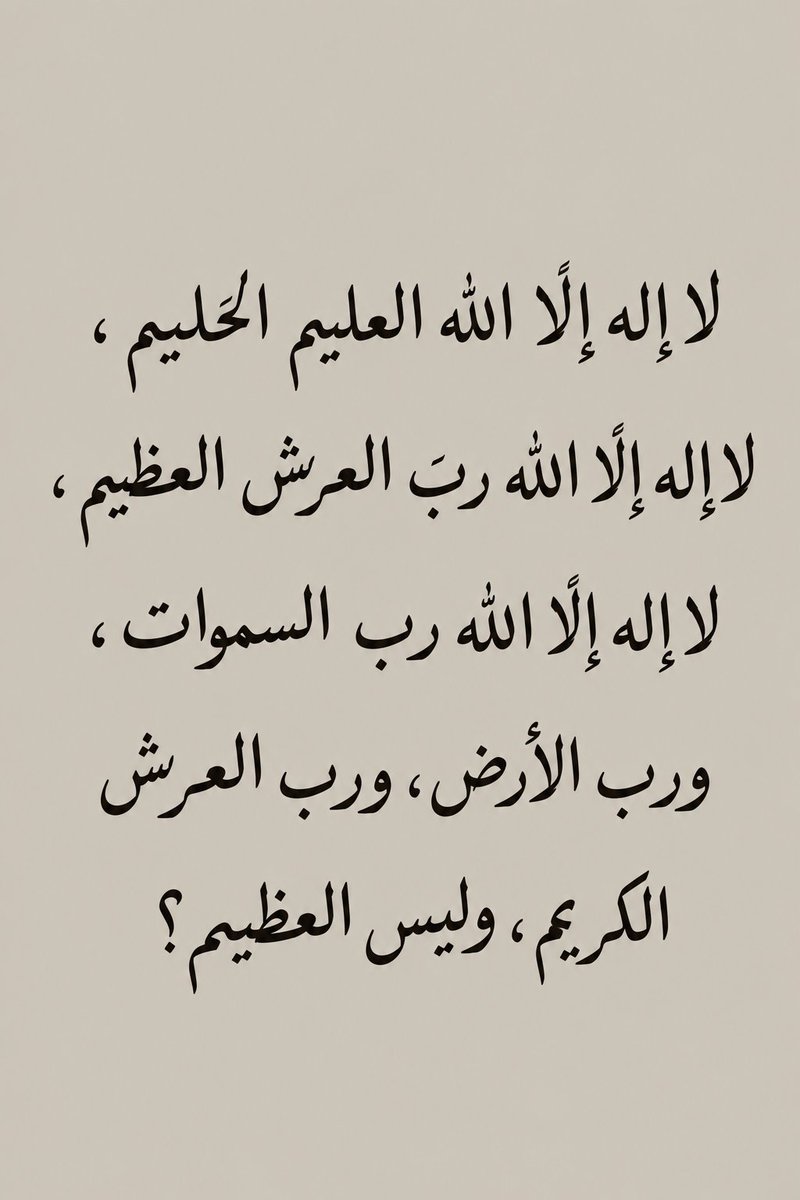 لا إله إلًا الله العليم الحَليم ،
لا إله إلًا الله ربَ العرش العظيم ،
لا إله إلًا الله رب السموات ،
ورب الأرض، ورب العرش
الكريم، وليس العظيم؟